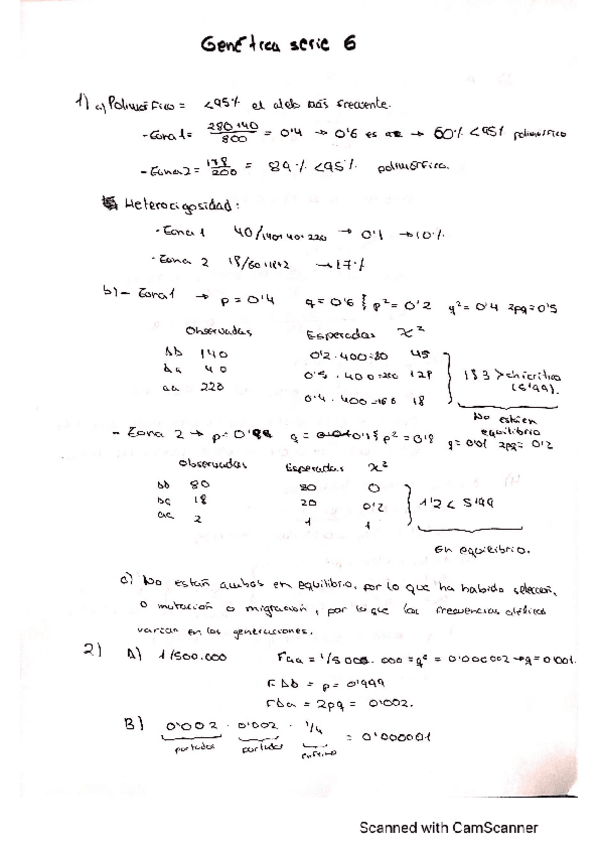 Genética serie 6
1) a) Polimórfico = <95% el alelo más frecuente.
- Zona 1 = 280+40/800 = 0'4 → 0'6 es → 60% <95% polimórfico
- Zona 2 = 178/200 = 89% <95% polimórfica.
Heterocigosidad:
- Zona 1 40/140+40+220 → 0'1 → 10%
- Zona 2 18/80+18+2 → 17%
b) - Zona 1 → p = 0'4 q = 0'6 p² = 0'2 q² = 0'4 2pq = 0'5
Observadas Esperadas x²
bb 140 0'2·400=80 45
ba 40 0'5·400=200 128
aa 220 0'4·400=160 18
183 > chi crítico
(5'99).
No están
equilibrio
- Zona 2 → p = q = p² = 0'8 2pq = 0'2
Observadas Esperadas x²
bb 80 80 0
18 20 0'2
2 1 1
1'2 < 5'99
En equilibrio.
c) No están ambos en equilibrio, por lo que ha habido selección,
o mutación o migración, por lo que las frecuencias alélicas
varían en las generaciones.
2) A) 1/500.000 Faa = 1/500.000 = q² = 0'000002 → q = 0'001.
= p = 0'999
= 2pq = 0'002.
B) 0'002 · 0'002 · 1/4 = 0'000001
portador portador enfermo
Scanned with CamScanner